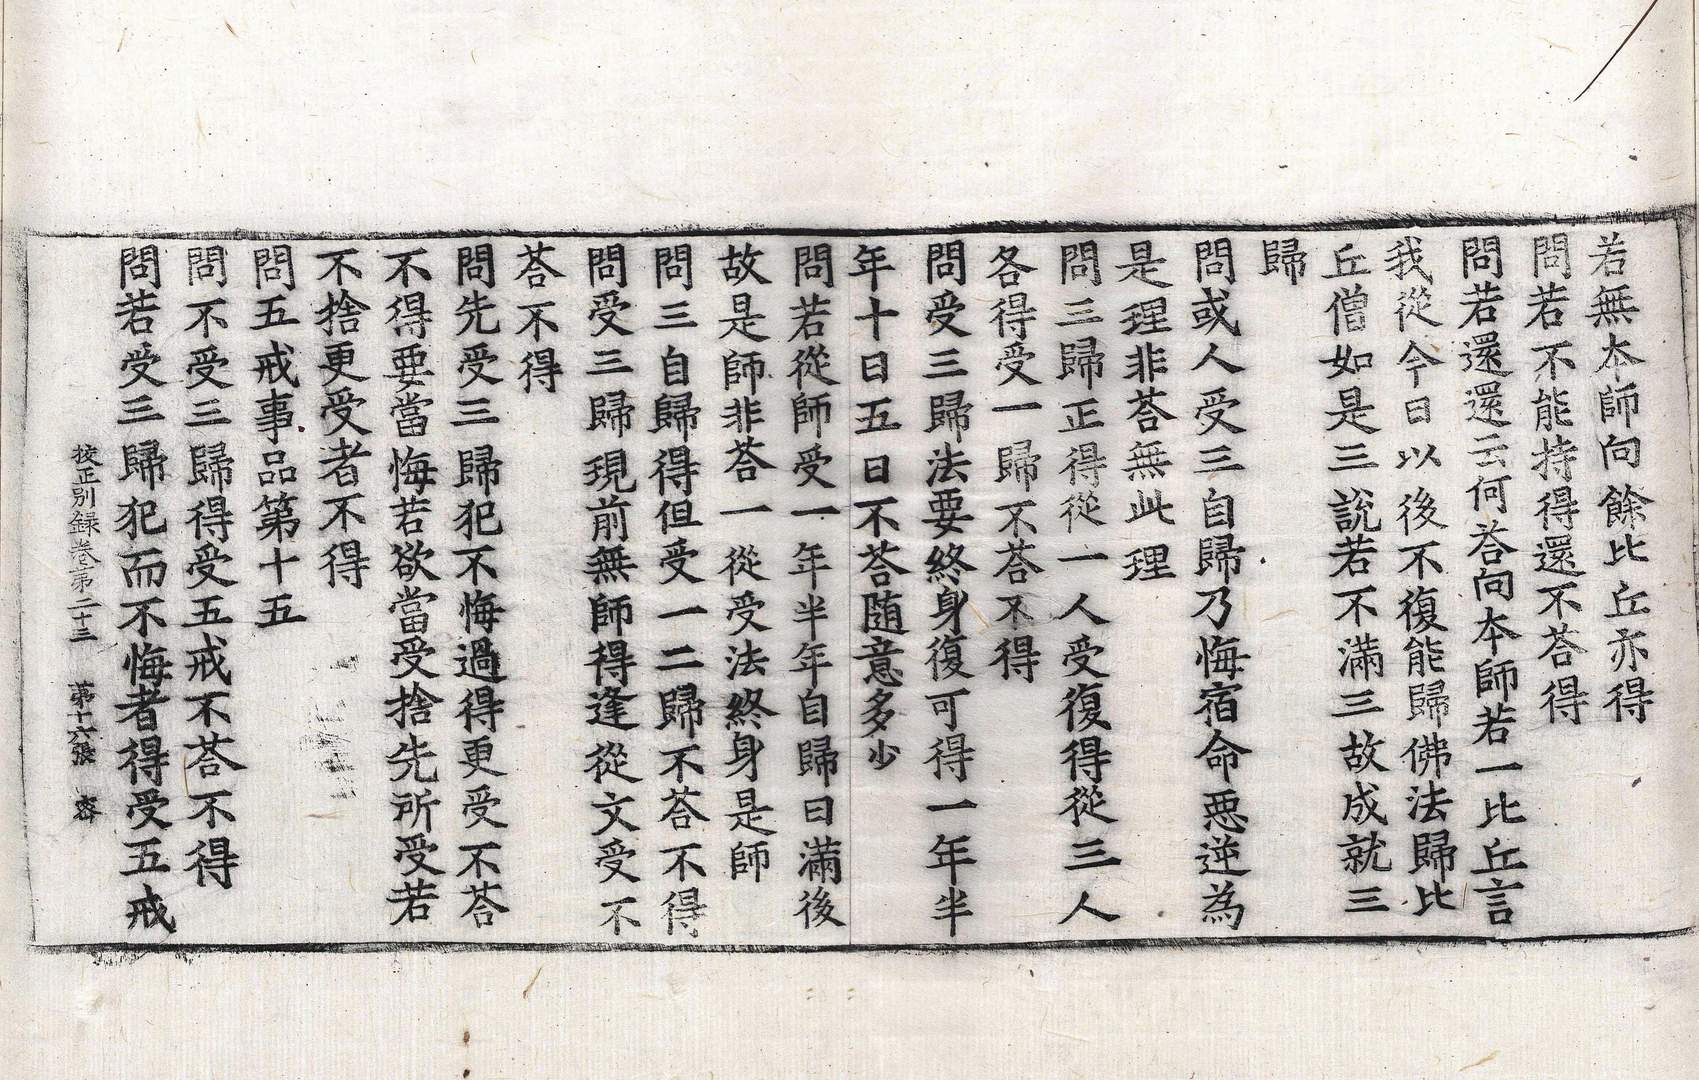 若無本師向餘比丘亦得
問若不能持得還不荅得
問若還還云何荅向本師若一比丘言
我從今日以後不復能歸佛法歸比
丘僧如是三說若不滿三故成就三
歸
問或人受三自歸乃悔宿命惡逆為
是理非荅無此理
問三歸正得從一人受復得從三人
各得受一歸不荅不得
問受三歸法要終身復可得一年半
年十日五日不荅随意多少
問若從師受一年半年自歸日滿後
故是師非荅一從受法終身是師
問三自歸得但受一二歸不荅不得
問受三歸現前無師得逢從文受不
荅不得
問先受三歸犯不悔過得更受不荅
不得要當悔若欲當受捨先所受若
不捨更受者不得
問五戒事品第十五
問不受三歸得受五戒不荅不得
問若受三歸犯而不悔者得受五戒
挍正別録卷第二十三 第十六張 容